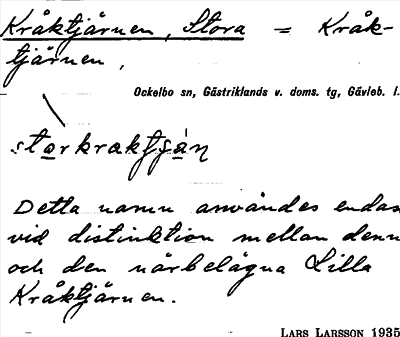 Kråktjärnen, Stora = Kråk-
tjärnen,
Ockelbo sn, Gästriklands v. doms. tg, Gävleb. l.
Detta namn användes endas
vid distinktion mellan denn
och den närbelägna Lilla
Kråktjärnen.
LARS LARSSON 1935